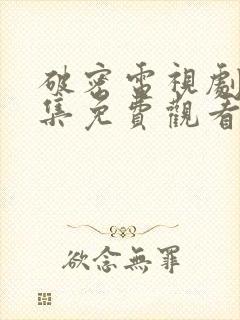 破密電視劇
集免費觀看
欲念無罪